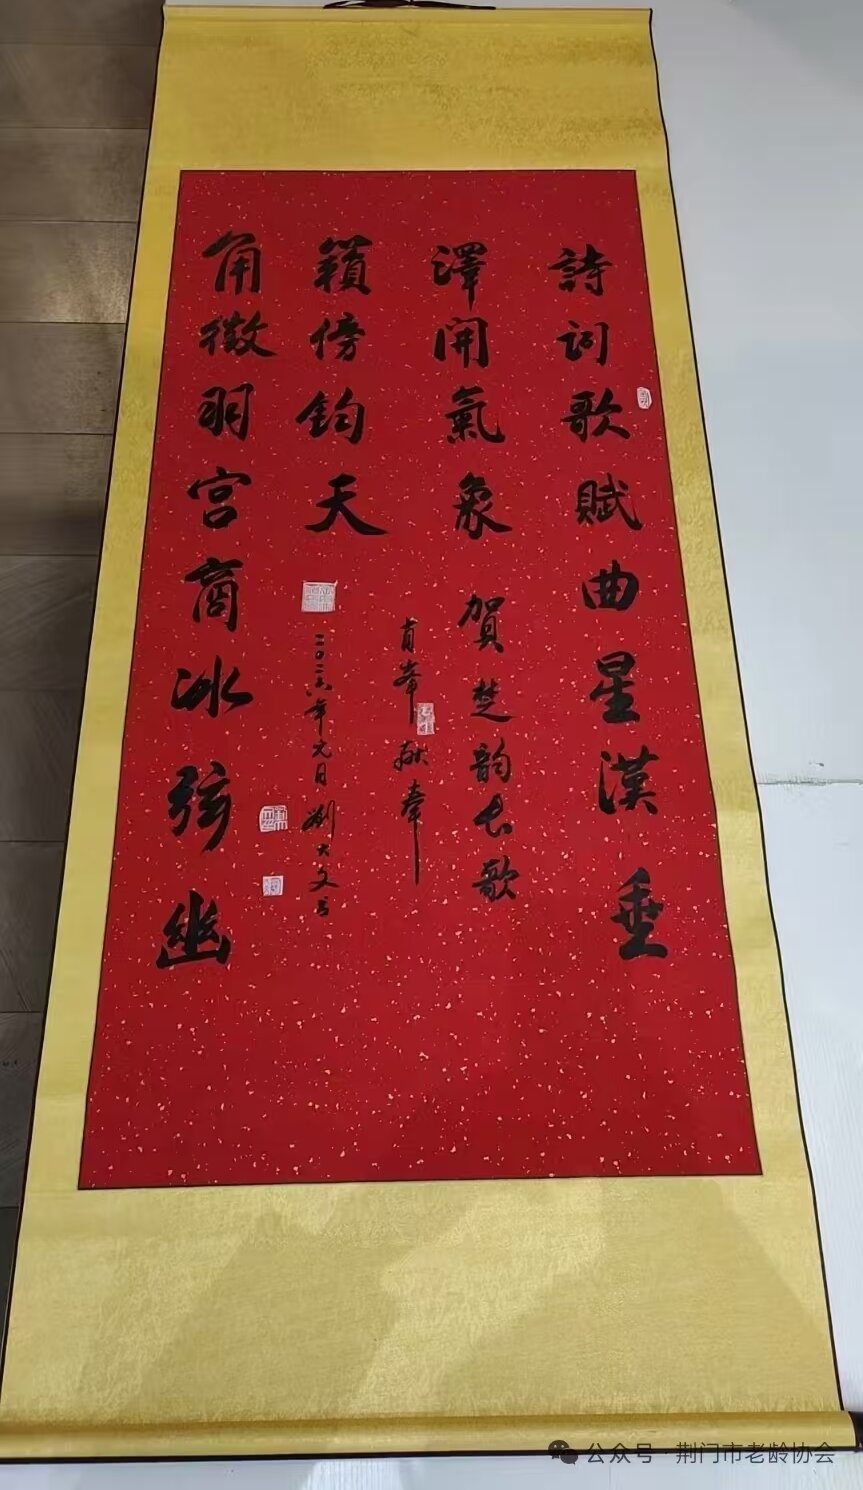 詩词歌賦曲星漢垂
澤開氣象
賀楚韵长歌
肖峯献奉
角徵羽宫商冰弦幽
籟傍鈞天
二〇二六年元月刘大文书
公众号·荆门市老龄协会